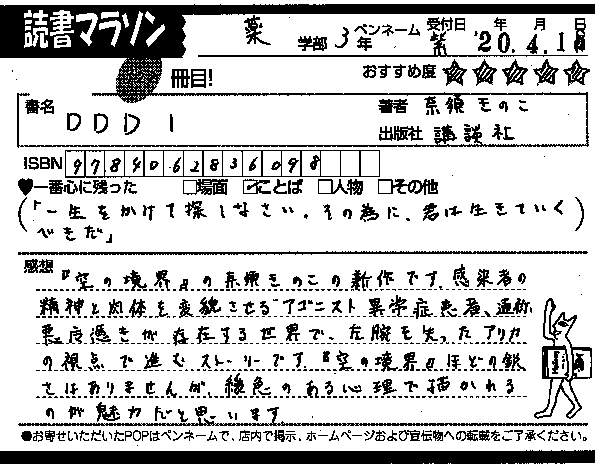 読書マラソン
薬 学部 3年 ペンネーム 紫 受付日 '20年.4月.1日
冊目! おすすめ度 ☆☆☆☆☆
書名 DDD 1
著者 奈須きのこ
出版社 講談社
ISBN 9784062836098
♥一番心に残った □場面 ☑ことば □人物 □その他
(「一生をかけて探しなさい。その為に、君は生きていく
べきだ」)
感想 『空の境界』の奈須きのこの新作です。感染者の
精神と肉体を変貌させる"アゴニスト異常症患者、通称
悪魔憑きが存在する世界で、左腕を失ったアリカ
の視点で進むストーリーです。『空の境界』ほどの鋭
さはありませんが、緩急のある心理で描かれる
のが魅力だと思います。
●お寄せいただいたPOPはペンネームで、店内で掲示、ホームページおよび宣伝物への転載をご了承ください。